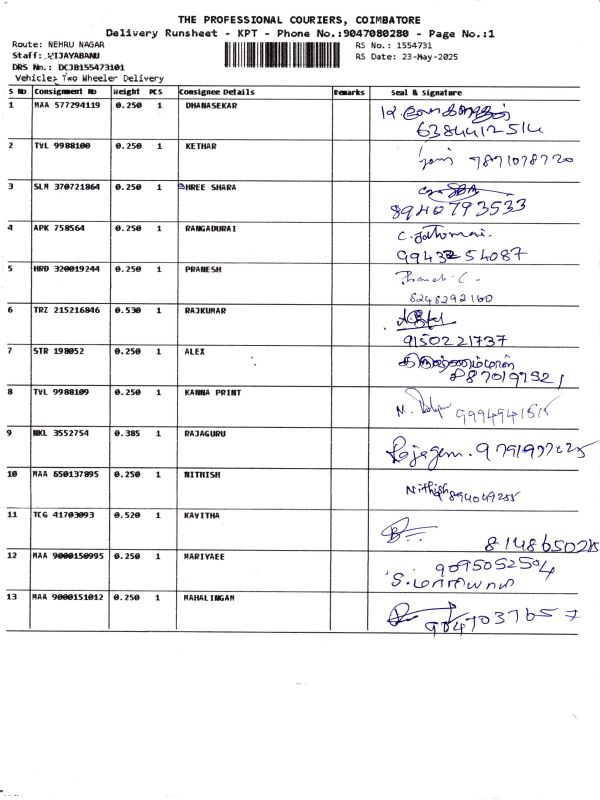 THE PROFESSIONAL COURIERS, COIMBATORE
Delivery Runsheet - KPT - Phone No.:9047080280 - Page No.:1
Route: NEHRU NAGAR
RS No.: 1554731
Staff: VIJAYABANU
RS Date: 23-May-2025
DRS No.: DCJB155473101
Vehicle: Two Wheeler Delivery
S No Consignment No Weight PCS Consignee Details Remarks Seal & Signature
1 MAA 577294119 0.250 1 DHANASEKAR
6384412514
2 TVL 9988100 0.250 1 KETHAR 7871078720
3 SLM 370721864 0.250 1 SHREE SHARA
8940793533
4 APK 758564 0.250 1 RANGADURAI
5 HRD 320019244 0.250 1 PRANESH
8248292160
6 TRZ 215216846 0.530 1 RAJKUMAR
9150221737
7 STR 198052 0.250 1 ALEX
8 TVL 9988109 0.250 1 KANNA PRINT
9 NKL 3552754 0.385 1 RAJAGURU
10 MAA 650137895 0.250 1 NITHISH Nithish
11 TCG 41703093 0.520 1 KAVITHA
12 MAA 9000150995 0.250 1 MARIYAEE
9095052504
13 MAA 9000151012 0.250 1 MAHALINGAM
9047037657